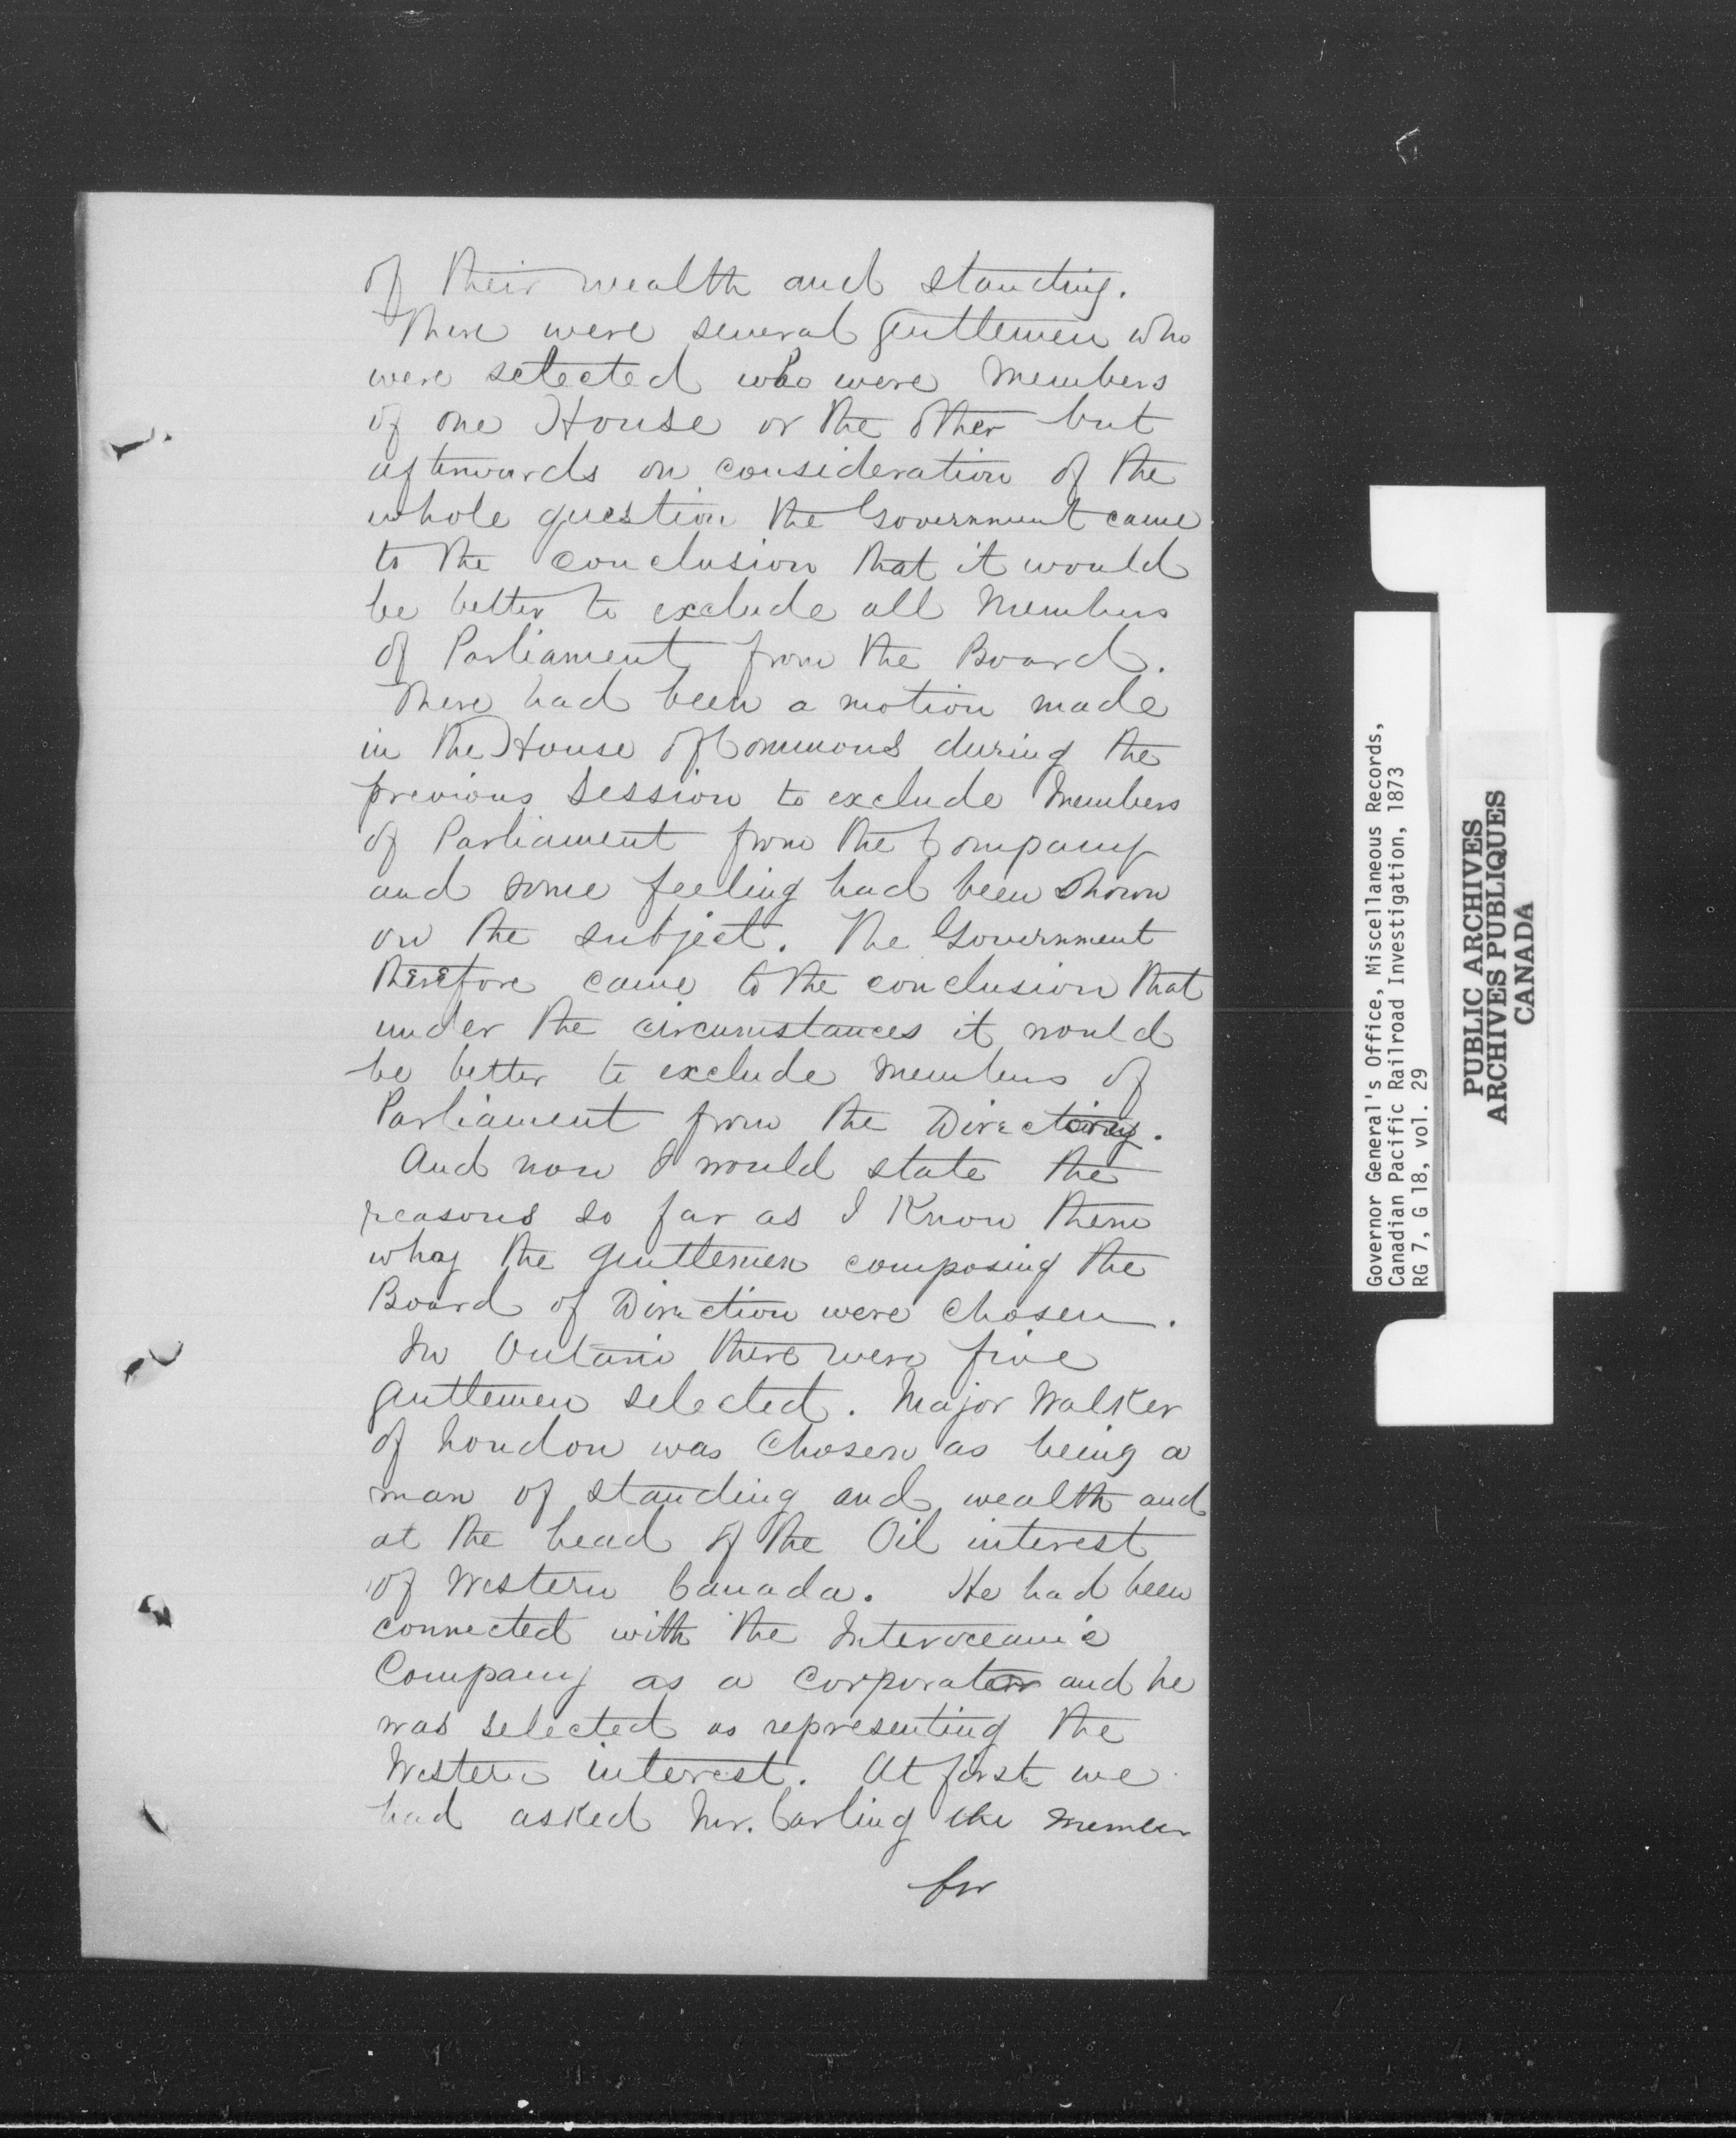 of their wealth and standing.
There were several gentlemen who
were selected who were Members
of one House or the other but
afterwards on consideration of the
whole question the Government came
to the conclusion that it would
be better to exclude all Members
of Parliament from the Board.
There had been a motion made
in the House of Commons during the
previous Session to exclude Members
of Parliament from the Company
and some feeling had been shown
on the subject. The Government
therefore came to the conclusion that
under the circumstances it would
be better to exclude Members of
Parliament from the Directory.
And now I would state the
reasons so far as I Know them
why the gentlemen composing the
Board of Direction were chosen.
In Ontario there were five
gentlemen selected. Major Walker
of London was chosen as being a
man of standing and wealth and
at the head of the Oil interest
of Western Canada. He had been
connected with the Interoceanic
Company as a Corporator and he
was selected as representing the
Western interest. At first we
had asked Mr. Carling the member
for
Governor General's Office, Miscellaneous Records,
Canadian Pacific Railroad Investigation, 1873
RG 7, G 18, vol. 29
PUBLIC ARCHIVES
ARCHIVES PUBLIQUES
CANADA